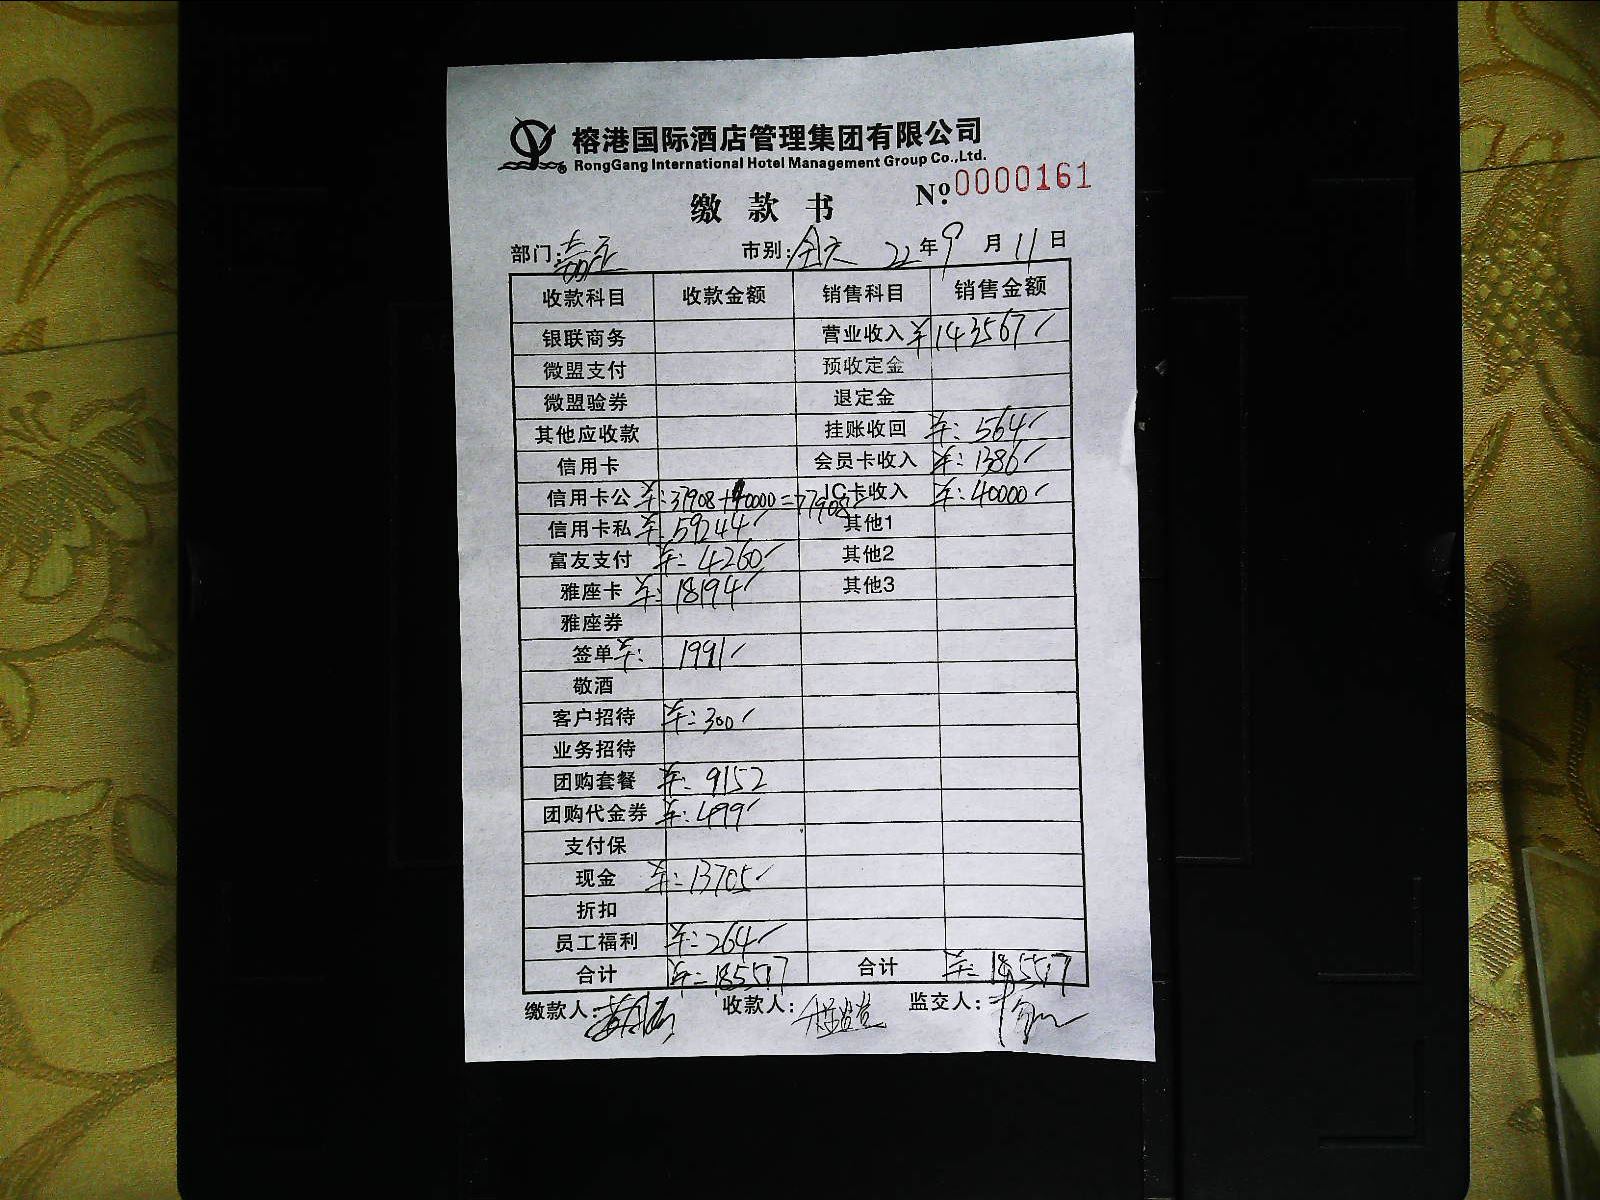 榕港国际酒店管理集团有限公司
RongGang International Hotel Management Group Co.,Ltd.
缴款书 Nº 0000161
部门: 市别:全天 22年9月11日
收款科目 收款金额 销售科目 销售金额
银联商务 营业收入 ¥143567
微盟支付 预收定金
微盟验券 退定金
其他应收款 挂账收回 ¥:564
信用卡 会员卡收入 ¥:1386
信用卡公 ¥:37908+40000=77908 IC卡收入 ¥:40000
信用卡私 ¥:59244 其他1
富友支付 ¥:4260 其他2
雅座卡 ¥:18194 其他3
雅座券
签单 ¥:1991
敬酒
客户招待 ¥:300
业务招待
团购套餐 ¥:9152
团购代金券 ¥:499
支付保
现金 ¥:13705
折扣
员工福利 ¥:264
合计 ¥:185517 合计 ¥:185517
缴款人: 收款人: 监交人: